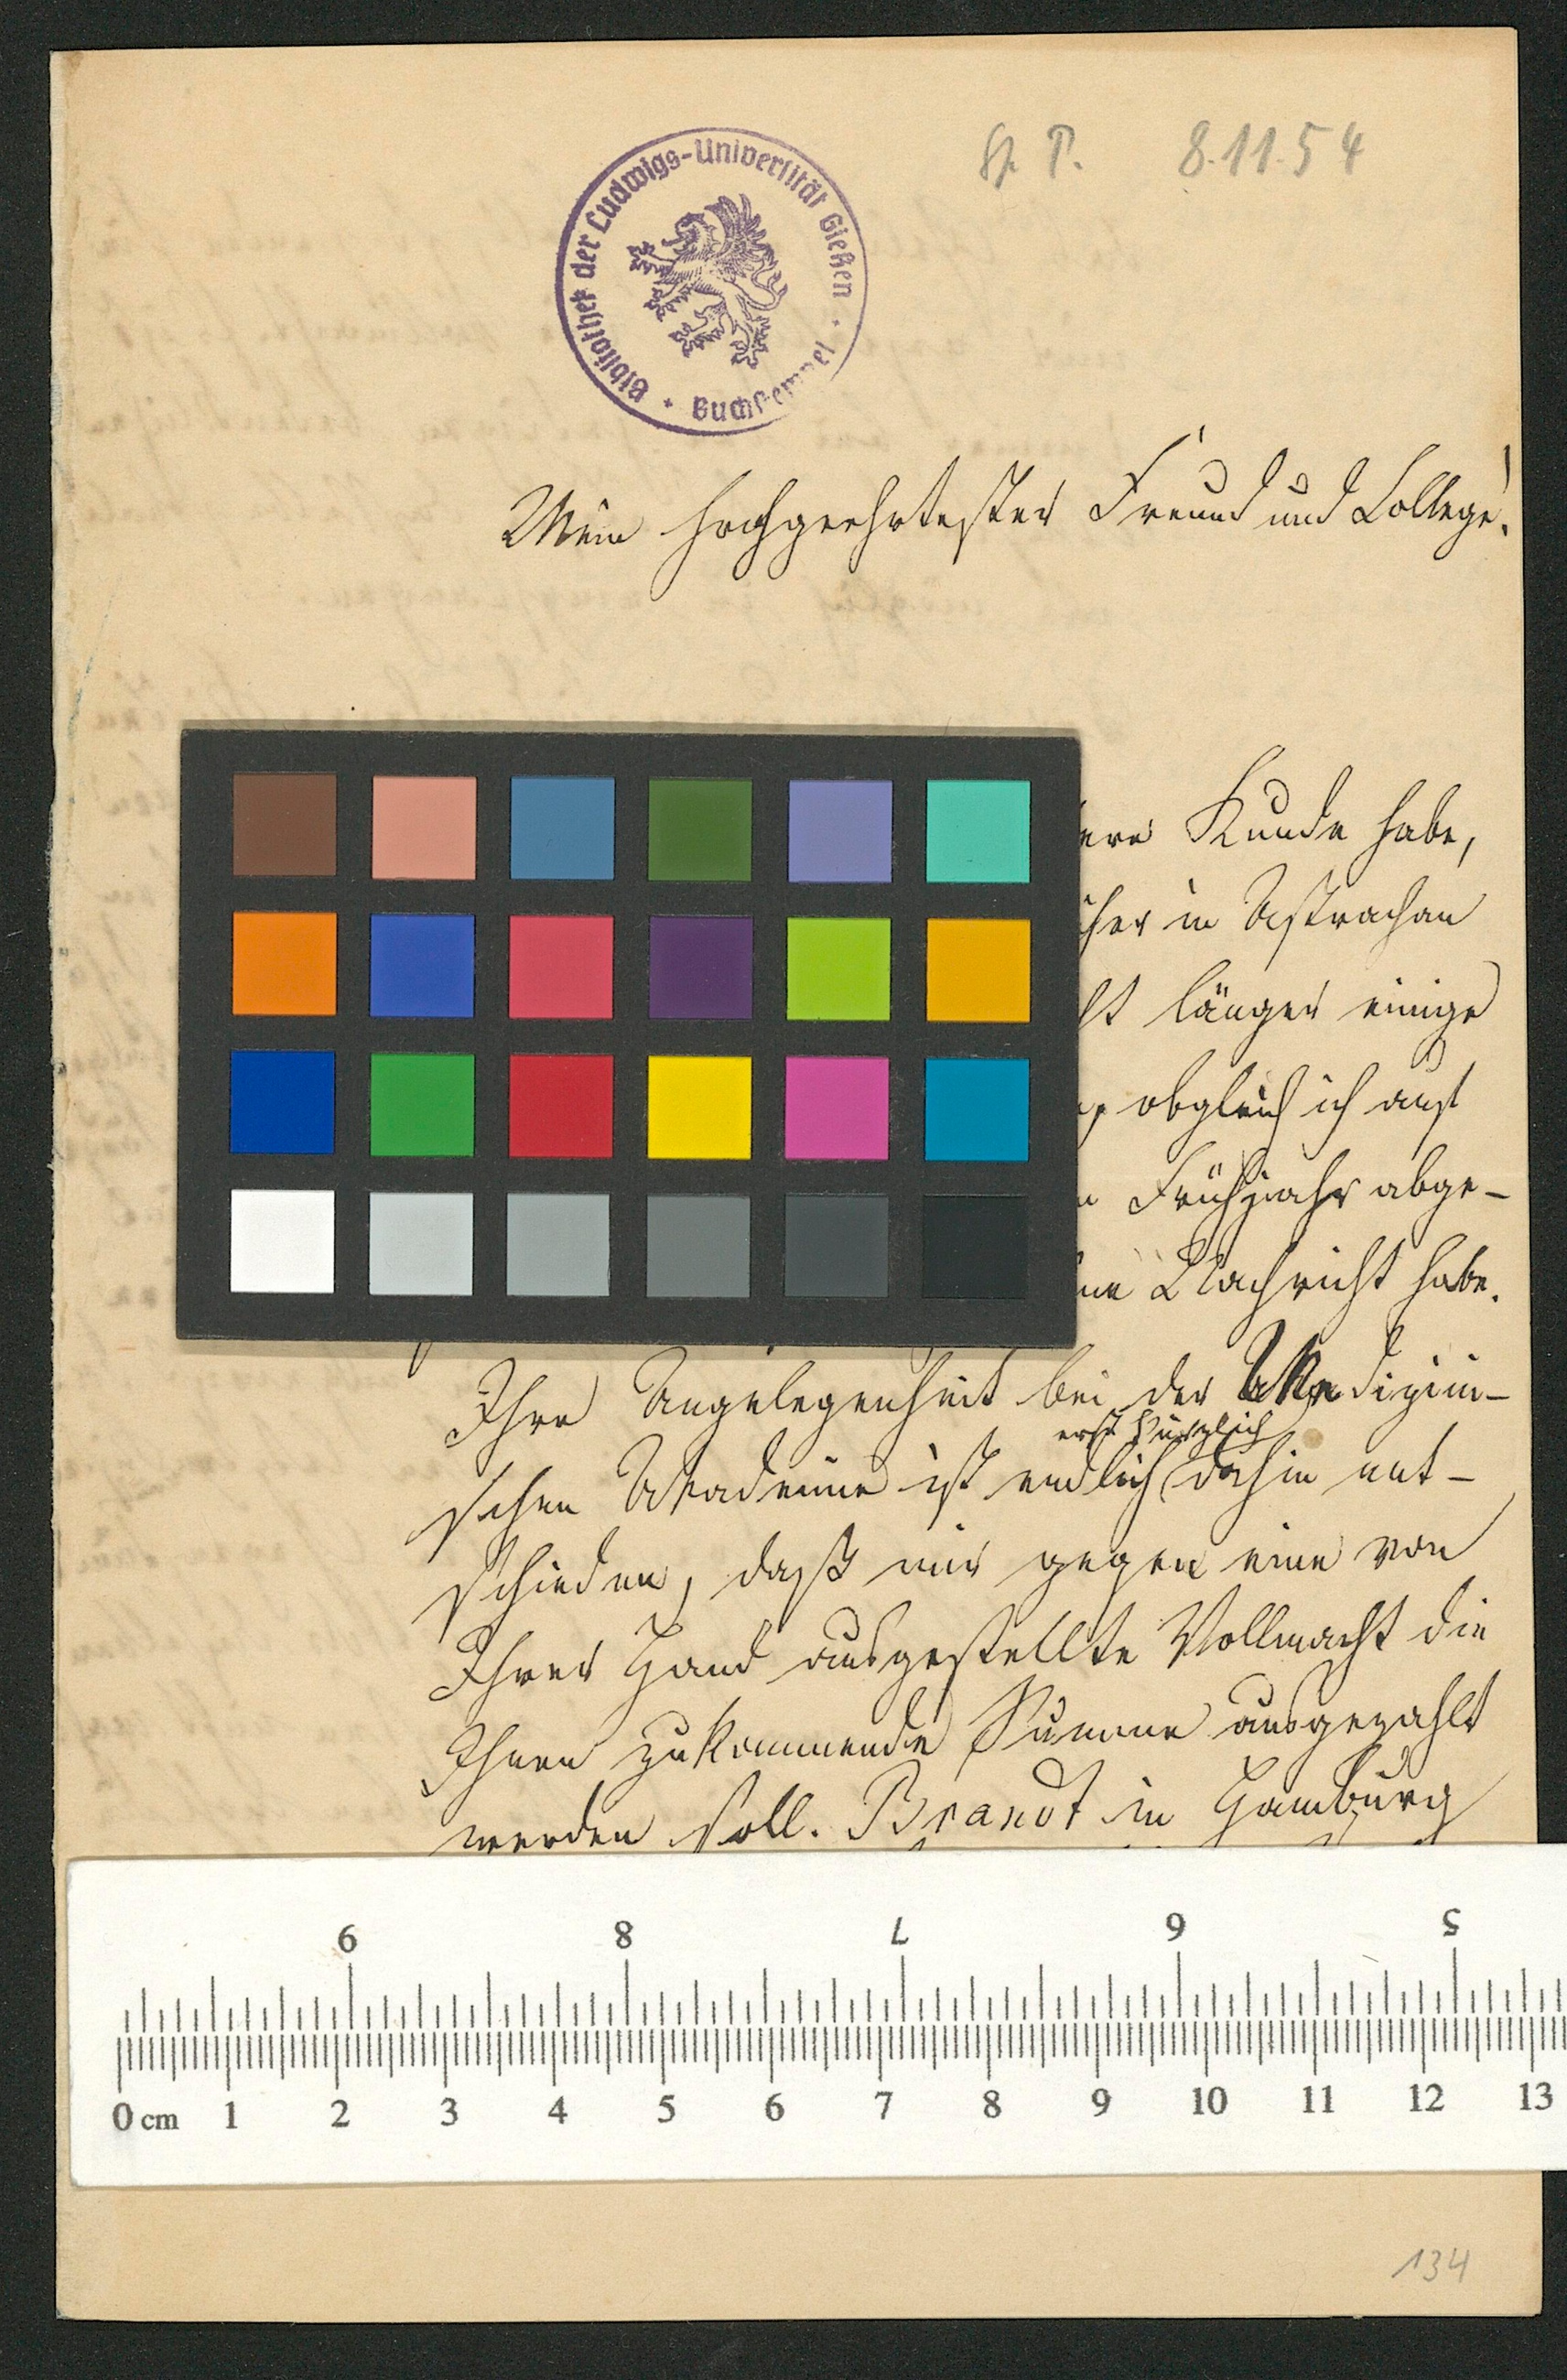 St. P. 8.11.54
Bibliothek der Ludwigs-Universität Gießen
Buchstempel
Mein hochgeehrtester Freund und College!
Kunde habe,
in Astrachan
länger einige
obgleich ich aus
Frühjahr abge-
Nachricht habe.
Ihre Angelegenheit bei der Medizini-
erst kürzlich
schen Akademie ist endlich dahin ent-
schieden, daß mir gegen eine von
Ihrer Hand ausgestellte Vollmacht die
Ihnen zukommende Summe ausgezahlt
werden soll. Brandt in Hamburg
9 8 7 6 5
0 cm 1 2 3 4 5 6 7 8 9 10 11 12 13
134